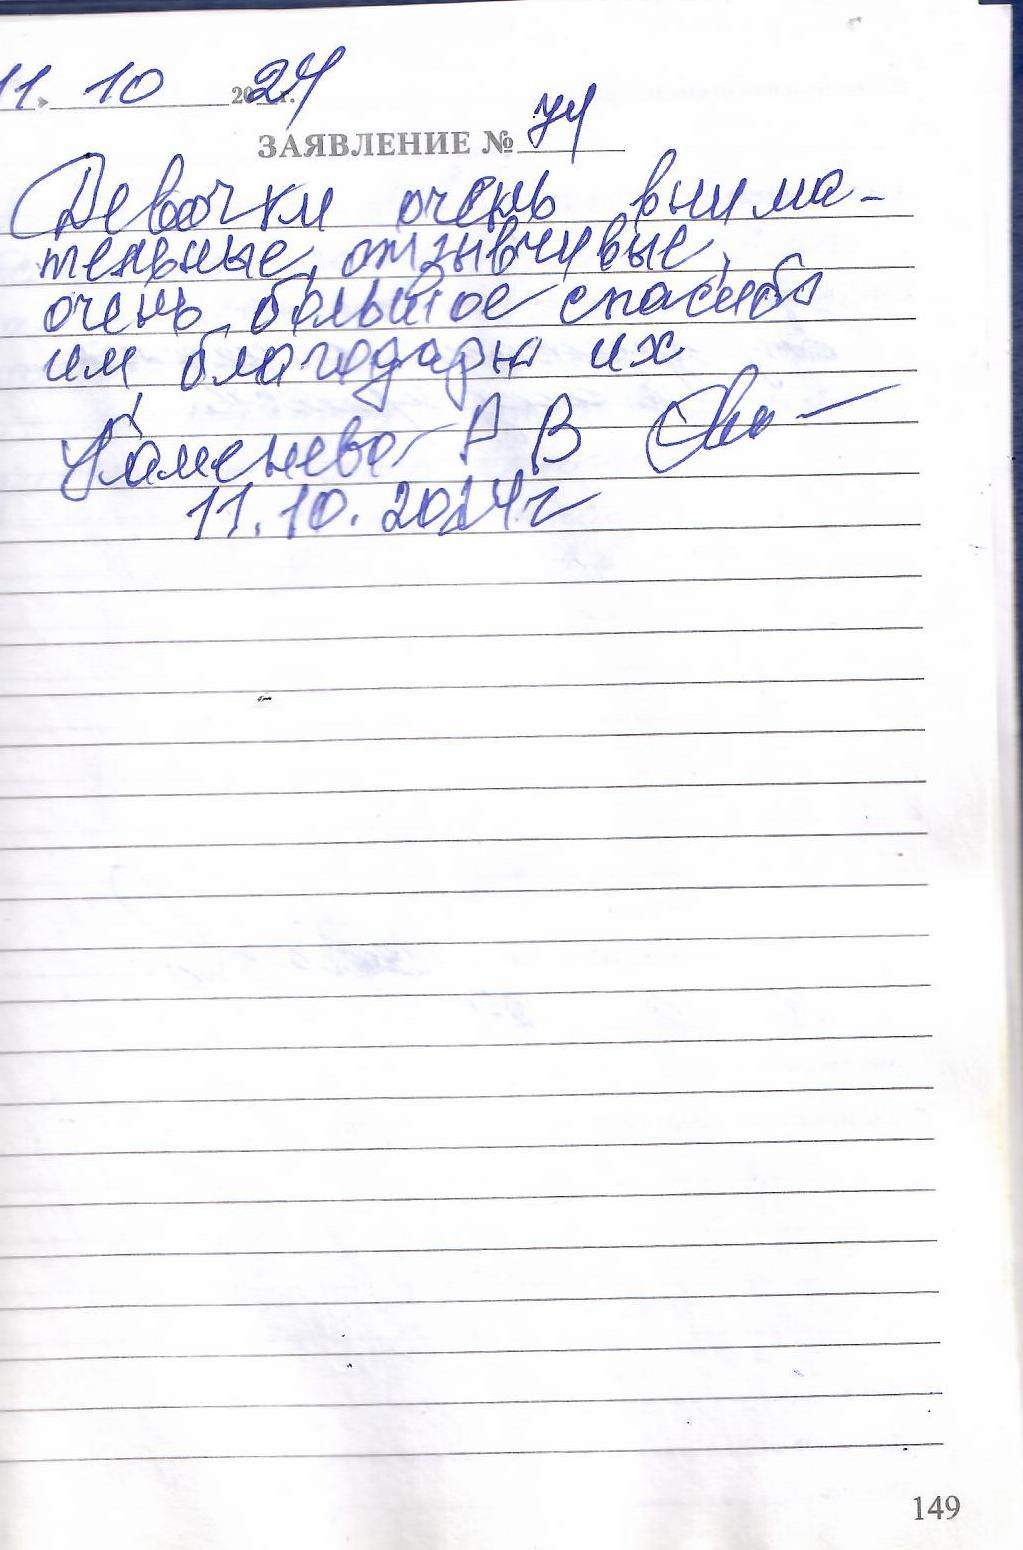 11. 10 2024 г.
ЗАЯВЛЕНИЕ № 74
Девочки очень внима-
тельные, отзывчивые,
очень большое спасибо
им благодарю их
Каменева Р В
11.10.2024г
149